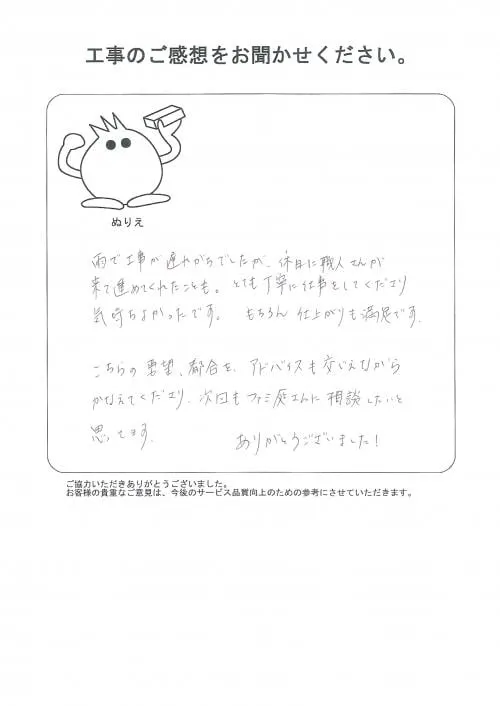 工事のご感想をお聞かせください。
ぬりえ
雨で工事が遅れがちでしたが、休日に職人さんが
来て進めてくれたことも。とても丁寧に仕事をしてくださり
気持ちよかったです。 もちろん 仕上がりも満足です.
こちらの要望、都合を、アドバイスも交じえながら
かなえてくださり、次回もファミ庭さんに相談したいと
思ってます. ありがとうございました!
ご協力いただきありがとうございました。
お客様の貴重なご意見は、今後のサービス品質向上のための参考にさせていただきます。